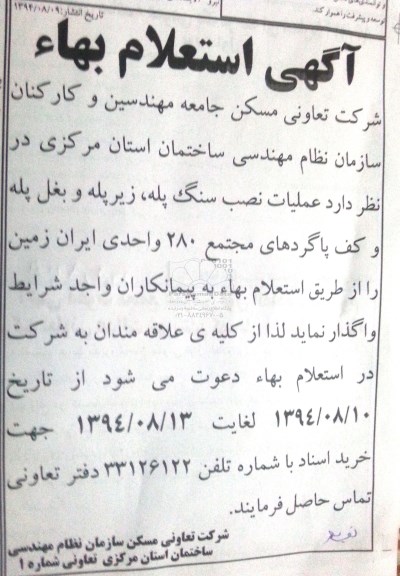 توسعه و پیشرفت را هموار کند
تاریخ انتشار: ۱۳۹۴/۰۸/۰۹
آگهی استعلام بهاء
شرکت تعاونی مسکن جامعه مهندسین و کارکنان
سازمان نظام مهندسی ساختمان استان مرکزی در
نظر دارد عملیات نصب سنگ پله، زیرپله و بغل پله
و کف پاگردهای مجتمع ۲۸۰ واحدی ایران زمین
را از طریق استعلام بهاء به پیمانکاران واجد شرایط
واگذار نماید لذا از کلیه ی علاقه مندان به شرکت
در استعلام بهاء دعوت می شود از تاریخ
۱۳۹۴/۰۸/۱۰ لغایت ۱۳۹۴/۰۸/۱۳ جهت
خرید اسناد با شماره تلفن ۳۳۱۲۶۱۲۲ دفتر تعاونی
تماس حاصل فرمایند.
شرکت تعاونی مسکن سازمان نظام مهندسی
ساختمان استان مرکزی تعاونی شماره ۱